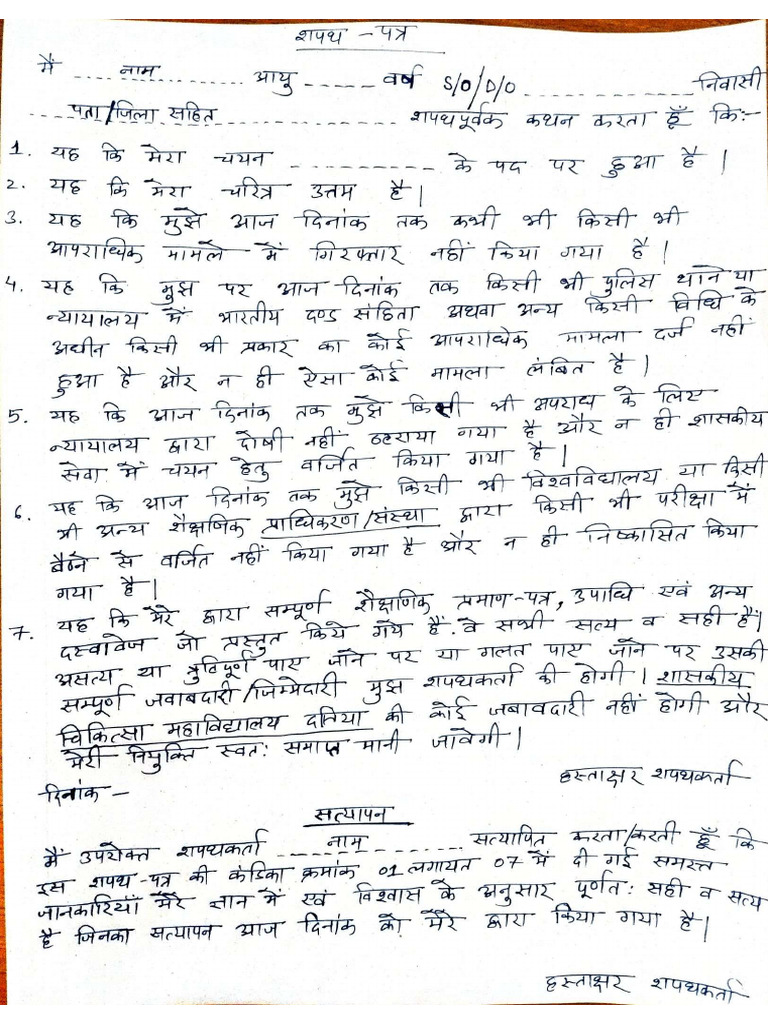 शपथ - पत्र
मैं ... नाम ... आयु ...... वर्ष S/O/D/O .................. निवासी
... पता/जिला सहित ............ शपथपूर्वक कथन करता हूँ कि:-
1. यह कि मेरा चयन ............... के पद पर हुआ है।
2. यह कि मेरा चरित्र उत्तम है।
3. यह कि मुझे आज दिनांक तक कभी भी किसी भी
आपराधिक मामले में गिरफ्तार नहीं किया गया है।
4. यह कि मुझ पर आज दिनांक तक किसी भी पुलिस थाने या
न्यायालय में भारतीय दण्ड संहिता अथवा अन्य किसी विधि के
अधीन किसी भी प्रकार का कोई आपराधिक मामला दर्ज नहीं
हुआ है और न ही ऐसा कोई मामला लंबित है।
5. यह कि आज दिनांक तक मुझे किसी भी अपराध के लिए
न्यायालय द्वारा दोषी नहीं ठहराया गया है और न ही शासकीय
सेवा में चयन हेतु वर्जित किया गया है।
6. यह कि आज दिनांक तक मुझे किसी भी विश्वविद्यालय या किसी
भी अन्य शैक्षणिक प्राधिकरण/संस्था द्वारा किसी भी परीक्षा में
बैठने से वर्जित नहीं किया गया है और न ही निष्कासित किया
गया है।
7. यह कि मेरे द्वारा सम्पूर्ण शैक्षणिक प्रमाण-पत्र, उपाधि एवं अन्य
दस्तावेज जो प्रस्तुत किये गये हैं. वे सभी सत्य व सही हैं।
असत्य या त्रुटिपूर्ण पाए जाने पर या गलत पाए जाने पर उसकी
सम्पूर्ण जवाबदारी/जिम्मेदारी मुझ शपथकर्ता की होगी। शासकीय
चिकित्सा महाविद्यालय दतिया की कोई जबावदारी नहीं होगी और
मेरी नियुक्ति स्वत: समाप्त मानी जावेगी।
हस्ताक्षर शपथकर्ता
दिनांक -
सत्यापन
मैं उपरोक्त शपथकर्ता ... नाम ......... सत्यापित करता/करती हूँ कि
इस शपथ-पत्र की कंडिका क्रमांक 01 लगायत 07 में दी गई समस्त
जानकारियाँ मेरे ज्ञान में एवं विश्वास के अनुसार पूर्णत: सही व सत्य
है जिनका सत्यापन आज दिनांक को मेरे द्वारा किया गया है।
हस्ताक्षर शपथकर्ता